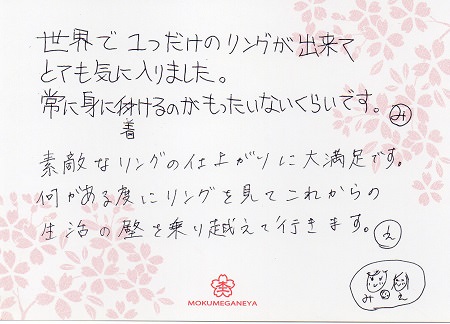 世界で1つだけのリングが出来て
とても気に入りました。
常に身に着けるのがもったいないくらいです。み
素敵なリングの仕上がりに大満足です。
何がある度にリングを見てこれからの
生活の壁を乗り越えて行きます。え
み え
MOKUMEGANEYA